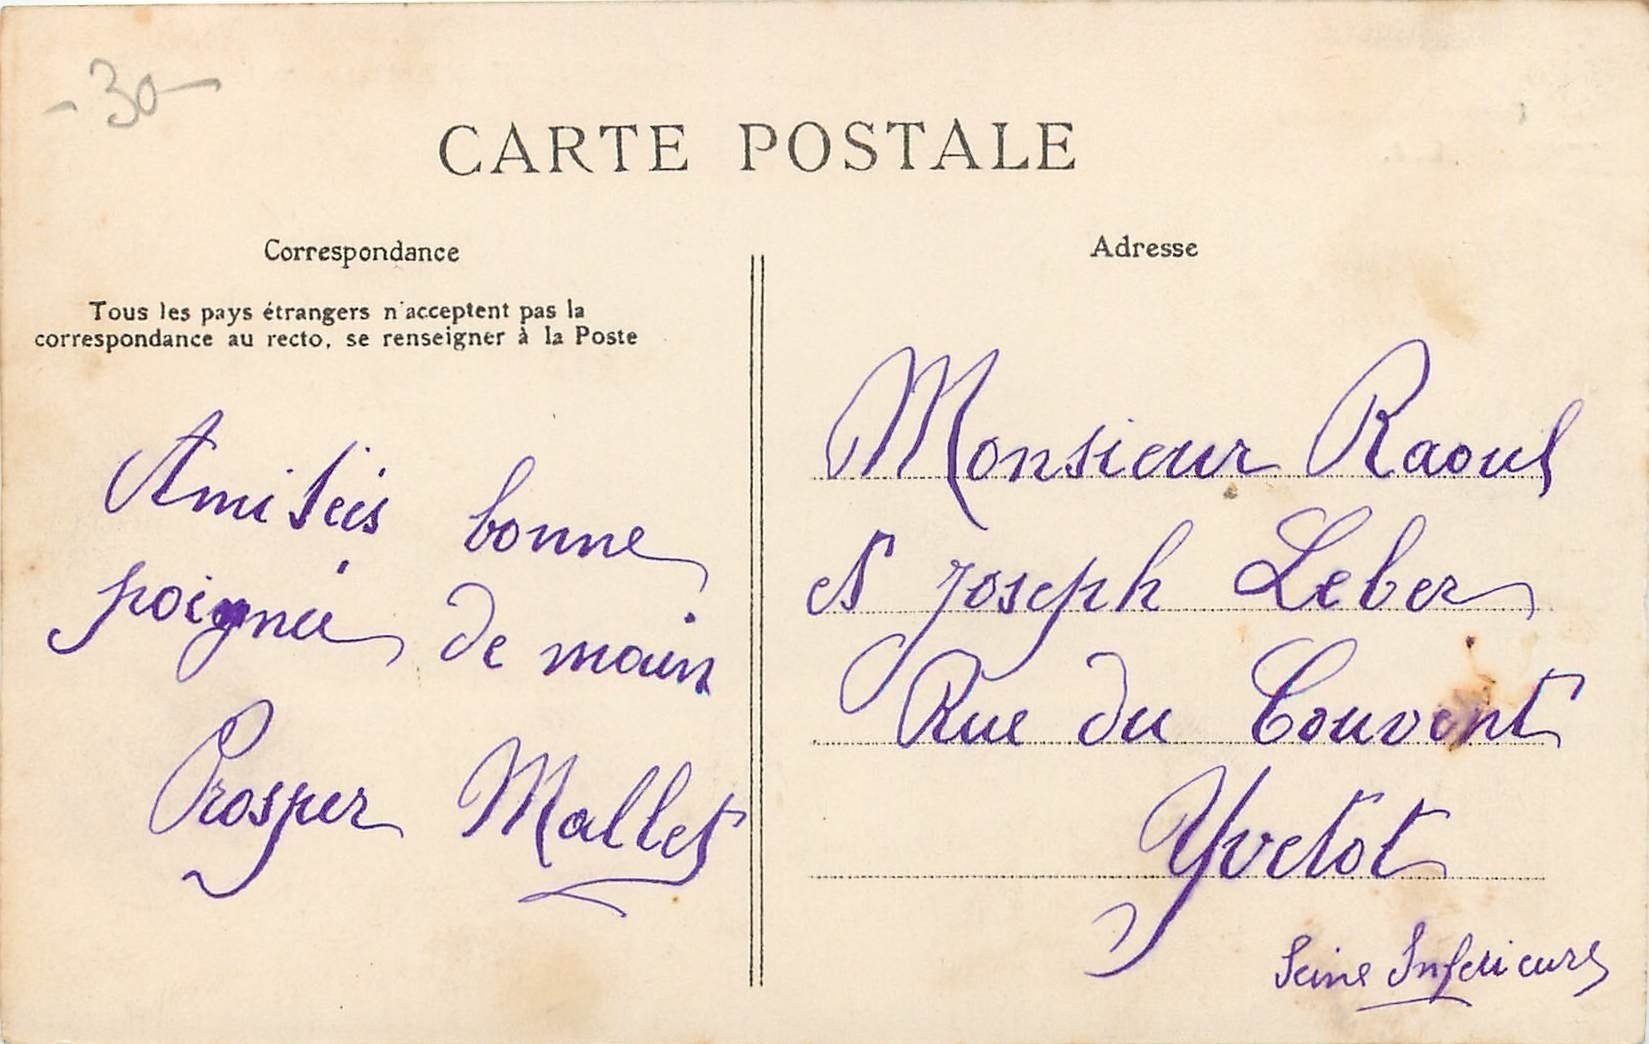 -30-
CARTE POSTALE
Correspondance
Tous les pays étrangers n'acceptent pas la
correspondance au recto, se renseigner à la Poste
Amitiés bonne
poignée de main
Prosper Mallet
Adresse
Monsieur Raoul
et Joseph Leber
Rue du Couvent
Yvetot
Seine Inférieure